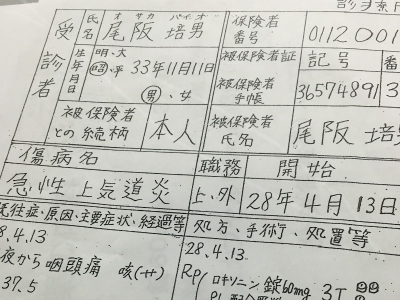 診療録
オサカ バイオ
受診者 氏名 尾阪 培男
生年月日 明・大 昭・平 33年11月11日
男・女
被保険者との続柄 本人
保険者番号 0112001
被保険者証 被保険者手帳 記号 36574891
被保険者氏名 尾阪 培男
傷病名 職務 開始
急性上気道炎 上・外 28年4月13日
既往症・原因・主要症状、経過等 処方、手術、処置等
28.4.13
夜から咽頭痛 咳(+)
37.5
28.4.13
Rp ロキソニン錠60mg 3T